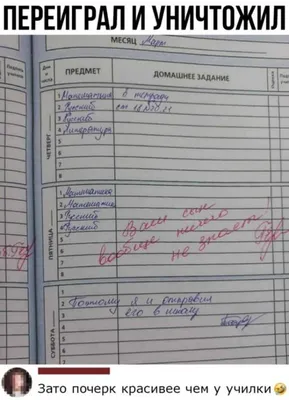 ПЕРЕИГРАЛ И УНИЧТОЖИЛ
МЕСЯЦ Март
ПРЕДМЕТ
ДОМАШНЕЕ ЗАДАНИЕ
ЧЕТВЕРГ
1 Математика в тетради
2 Русский
3 Русский
4 Литература
5
6
7
8
ПЯТНИЦА
1 Математика
2 Математика
3 Русский
4 Русский
5
6
7
8
Ваш сын
вообще ничего
не знает!
СУББОТА
1
2 Поэтому я и отправил
3 его в школу
4
5
6
7
8
Зато почерк красивее чем у училки🤣